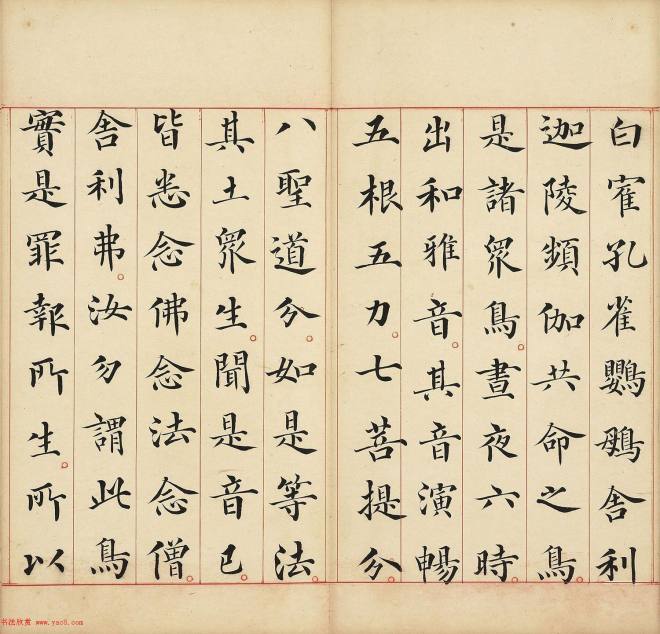 白寉孔雀鸚鵡舍利
迦陵頻伽共命之鳥
是諸眾鳥晝夜六時
出和雅音其音演暢
五根五力七菩提分
八聖道分如是等法
其土眾生聞是音已
皆悉念佛念法念僧
舍利弗汝勿謂此鳥
實是罪報所生所以
书法欣赏 www.yac8.com